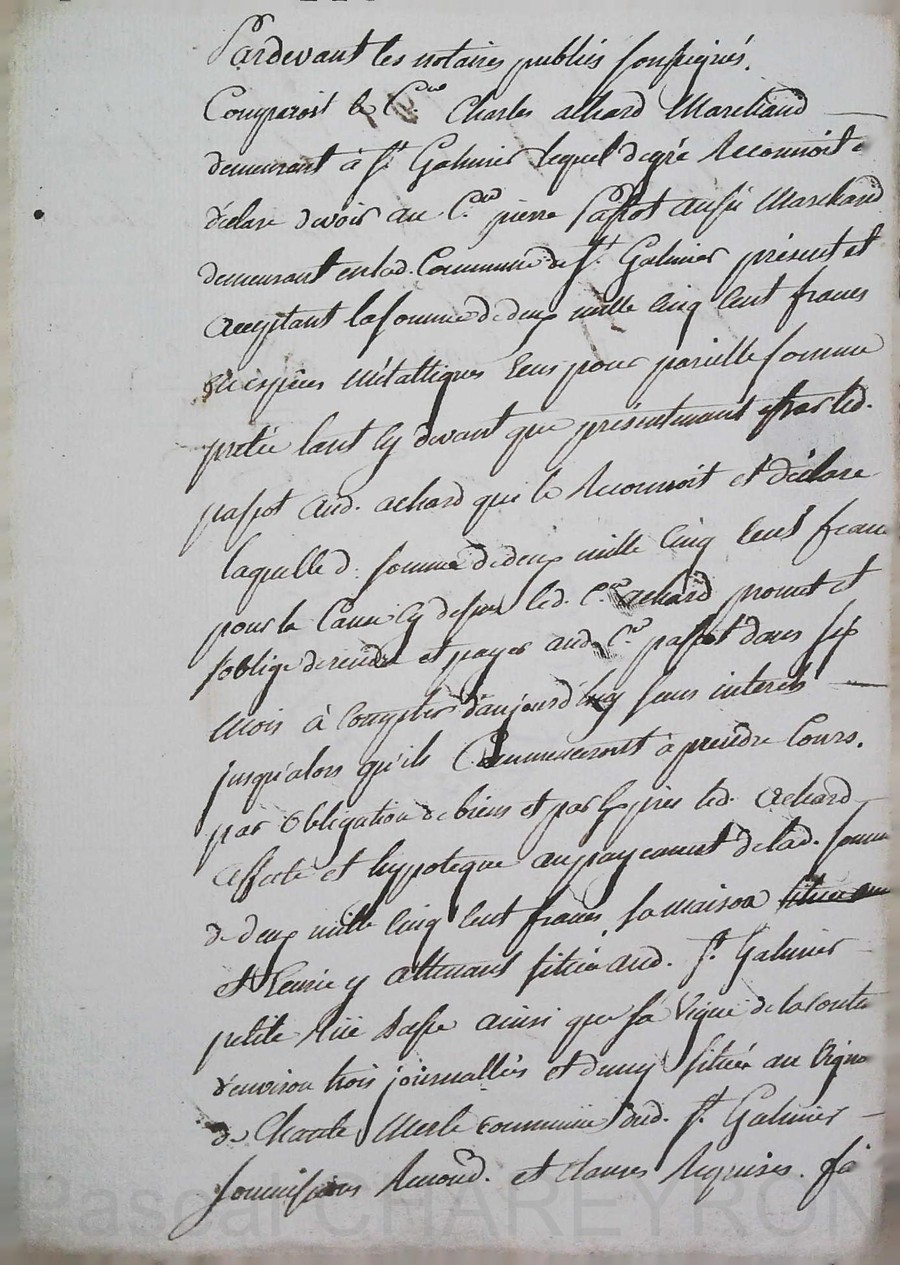 Pardevant les notaires publics soussignés.
Comparoit le C.en Charles achard Marchand
demeurant à St Galmier lequel degré Reconnoit &
déclare devoir au C.en pierre Passot aussi Marchand
demeurant en lad. Commune de St. Galmier présent et
acceptant la somme de deux mille cinq cent francs
en espèces Métalliques Ceus pour pareille somme
pretée tant cy devant que présentement par led.
passot aud. achard qui le Reconnoit et déclare
laquelle d. somme de deux mille cinq cent franc
pour la Cause cy dessus led. C.en achard promet et
s'oblige de rendre et payer aud. C.en passot dans six
Mois à compter d'aujourd'huy sans interets
jusqu'alors qu'ils Commenceront à prendre Cours.
par obligation de biens et par Exprès led. achard
affecte et hypoteque au payement de lad. somme
de deux mille cinq cent francs, sa maison située
et y attenant située aud. St. Galmier
petite Rüe basse ainsi que sa Vigne de la Contée
d'environ trois journalliés et demy située au Vigno
de Chante Merle commune dud. St. Galmier
soumissions Renond. et clauses Requises. fa
Pascal CHAREYRON